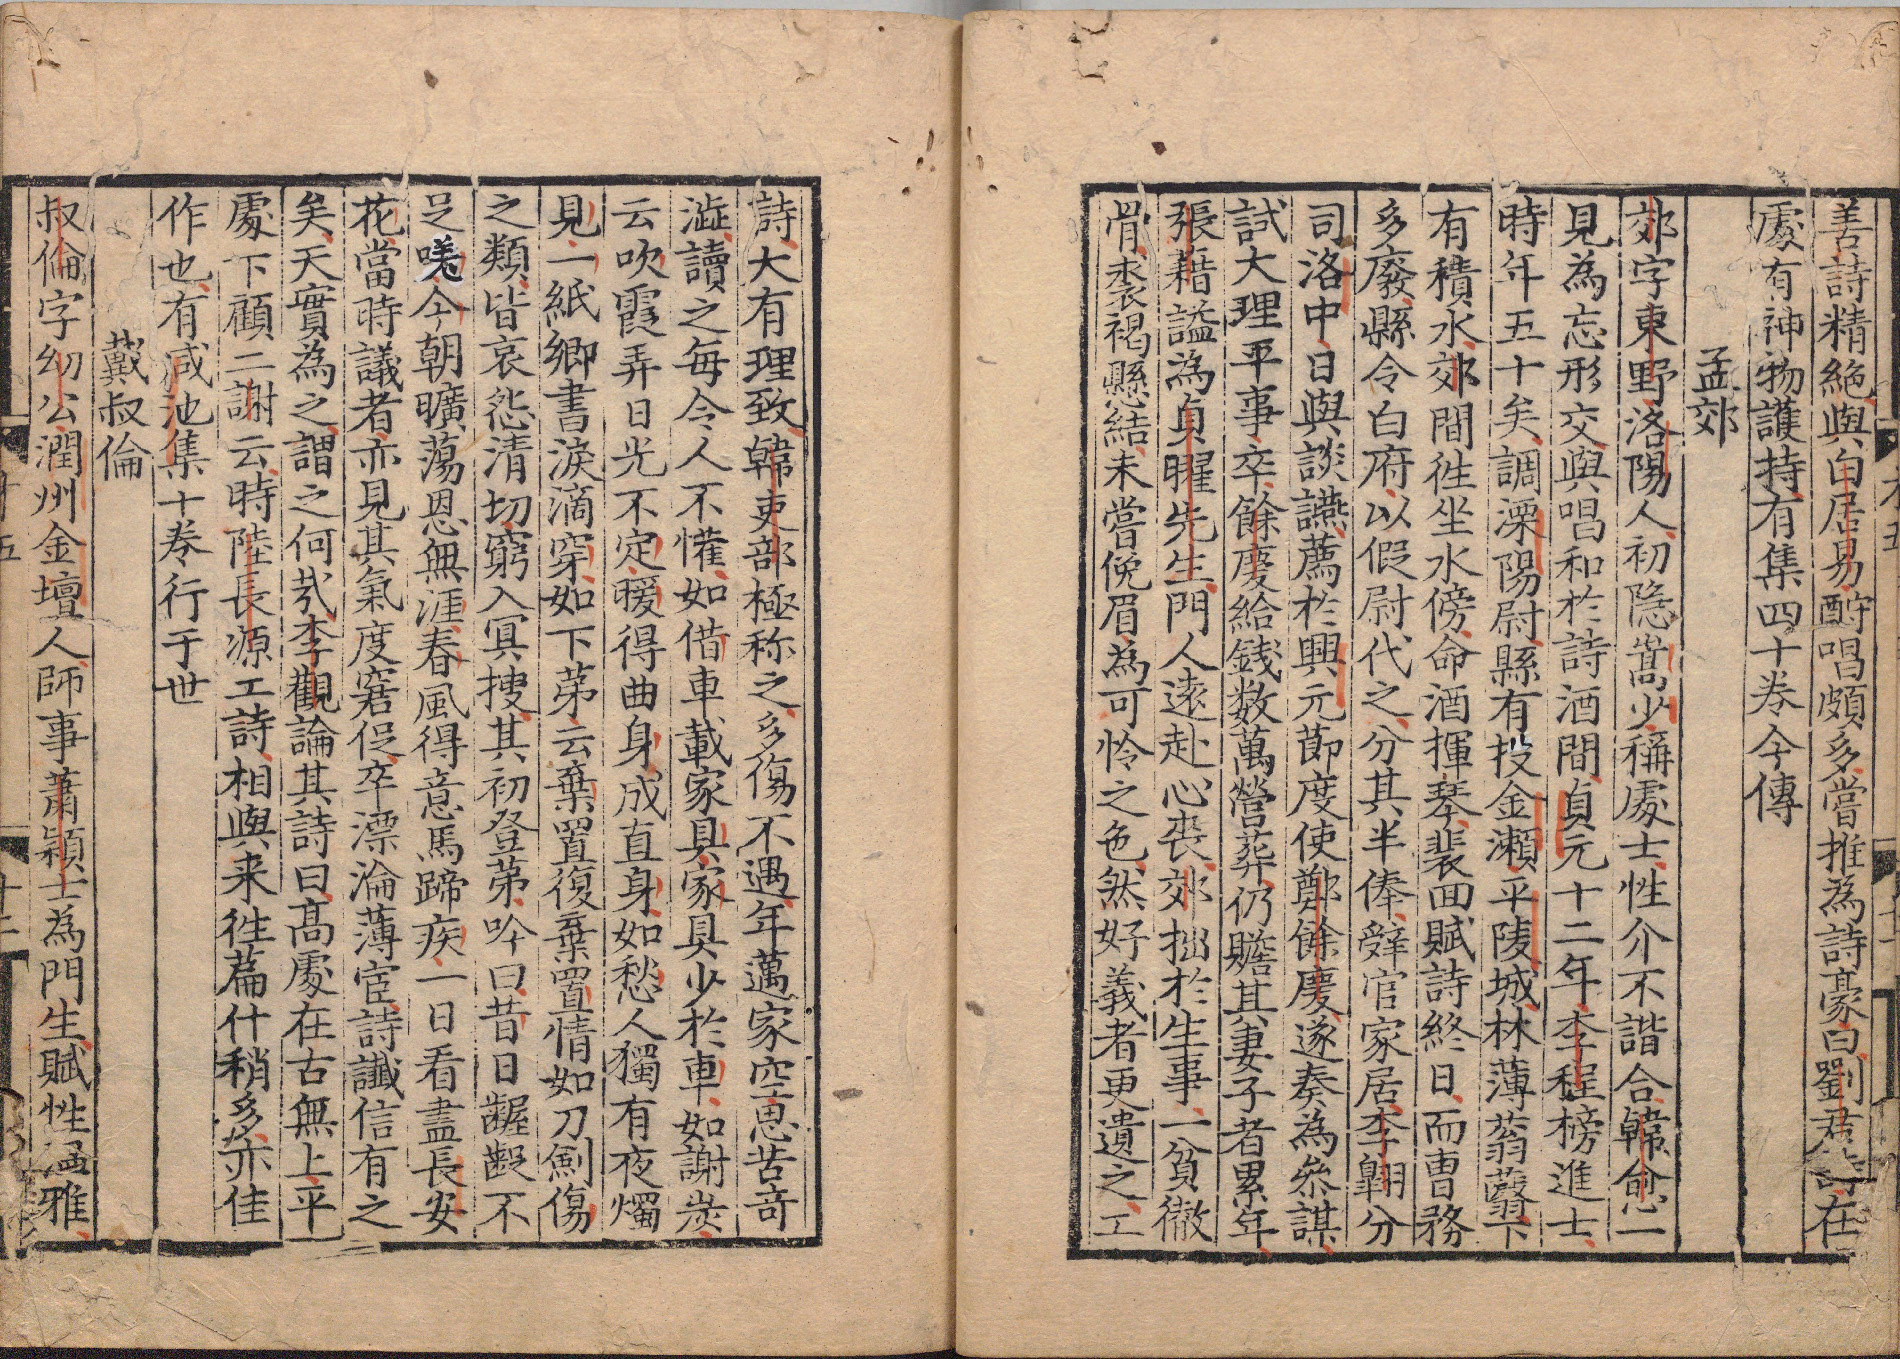 善詩精絶與白居易酧唱頗多嘗推為詩豪曰劉君詩在
處有神物護持有集四十卷今傳
孟郊
郊字東野洛陽人初隠嵩少稱處士性介不諧合韓愈一
見為忘形交與唱和於詩酒間貞元十二年李程榜進士
時年五十矣調溧陽尉縣有投金瀬平陵城林薄蓊蘙下
有積水郊間徃坐水傍命酒揮琴裴囬賦詩終日而曺務
多廢縣令白府以假尉代之分其半俸辤官家居李翺分
司洛中日與談讌薦於興元節度使鄭餘慶遂奏為叅謀
試大理平事卒餘慶給錢数萬營葬仍贍其妻子者累年
張藉謚為貞曜先生門人逺赴心丧郊拙於生事一貧徹
骨裘褐懸結未嘗俛眉為可怜之色然好義者更遺之工
詩大有理致韓吏部極称之多傷不遇年邁家空思苦竒
澁讀之每令人不懽如借車載家具家具少於車如謝炭
云吹霞弄日光不定暖得曲身成直身如愁人獨有夜燭
見一紙郷書淚滴穿如下苐云棄置復棄置情如刀劍傷
之類皆哀怨清切窮入冥搜其初登苐吟曰昔日齷齪不
足嗟今朝曠蕩恩無涯春風得意馬蹄疾一日看盡長安
花當時議者亦見其氣度窘促卒漂淪薄宦詩讖信有之
矣天實為之謂之何㢤李觀論其詩曰髙處在古無上平
處下顧二謝云時陸長源工詩相與来徃篇什稍多亦佳
作也有咸池集十卷行于世
戴叔倫
叔倫字㓜公潤州金壇人師事蕭穎士為門生賦性温雅